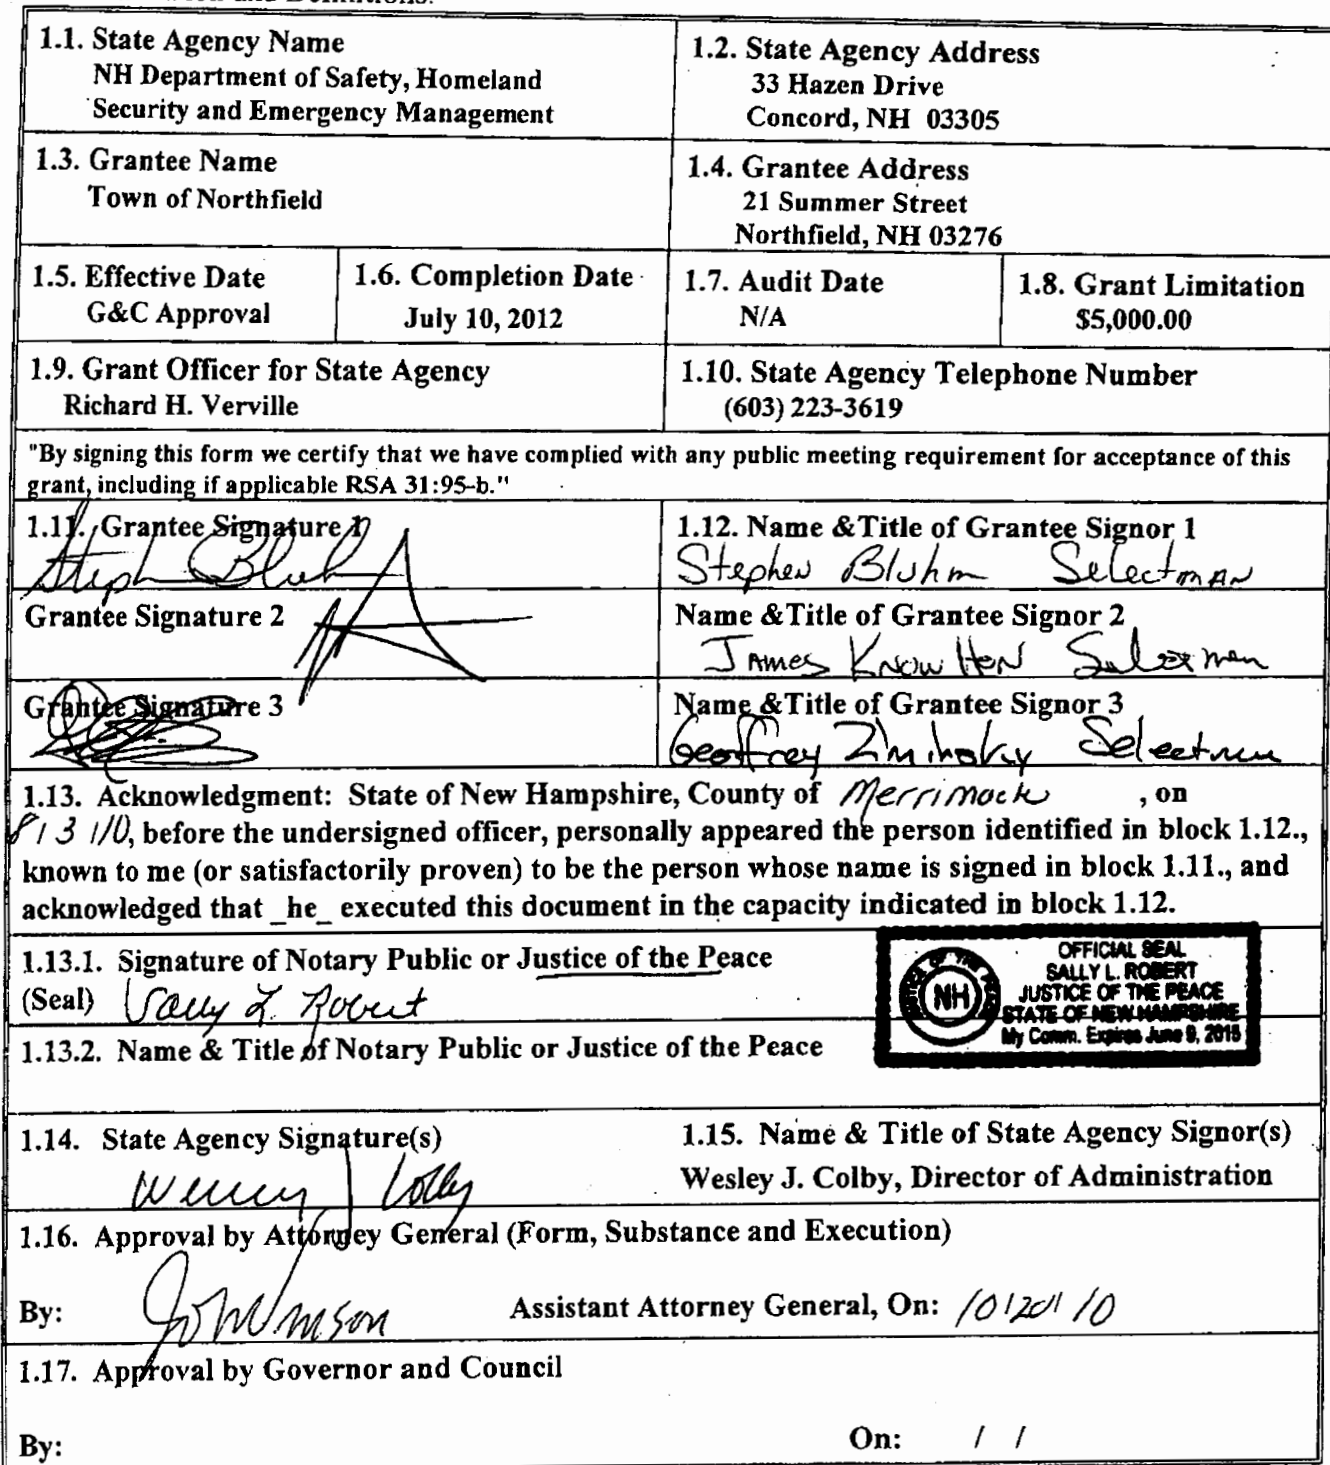 1.1. State Agency Name
NH Department of Safety, Homeland
Security and Emergency Management
1.2. State Agency Address
33 Hazen Drive
Concord, NH 03305
1.3. Grantee Name
Town of Northfield
1.4. Grantee Address
21 Summer Street
Northfield, NH 03276
1.5. Effective Date
G&C Approval
1.6. Completion Date
July 10, 2012
1.7. Audit Date
N/A
1.8. Grant Limitation
$5,000.00
1.9. Grant Officer for State Agency
Richard H. Verville
1.10. State Agency Telephone Number
(603) 223-3619
"By signing this form we certify that we have complied with any public meeting requirement for acceptance of this
grant, including if applicable RSA 31:95-b."
1.11. Grantee Signature 1
Steph Bluhm
1.12. Name &Title of Grantee Signor 1
Stephen Bluhm Selectman
Grantee Signature 2
Name &Title of Grantee Signor 2
James Knowlton
Grantee Signature 3
Name &Title of Grantee Signor 3
Geoffrey Ziminsky
1.13. Acknowledgment: State of New Hampshire, County of Merrimack , on
8/3/10, before the undersigned officer, personally appeared the person identified in block 1.12.,
known to me (or satisfactorily proven) to be the person whose name is signed in block 1.11., and
acknowledged that _he_ executed this document in the capacity indicated in block 1.12.
1.13.1. Signature of Notary Public or Justice of the Peace
(Seal) Sally L. Robert
OFFICIAL SEAL
SALLY L. ROBERT
JUSTICE OF THE PEACE
STATE OF NEW HAMPSHIRE
My Comm. Expires June 9, 2015
NH
1.13.2. Name & Title of Notary Public or Justice of the Peace
1.14. State Agency Signature(s)
Wesley J Colby
1.15. Name & Title of State Agency Signor(s)
Wesley J. Colby, Director of Administration
1.16. Approval by Attorney General (Form, Substance and Execution)
By: Assistant Attorney General, On: 10/20/10
1.17. Approval by Governor and Council
By: On: / /